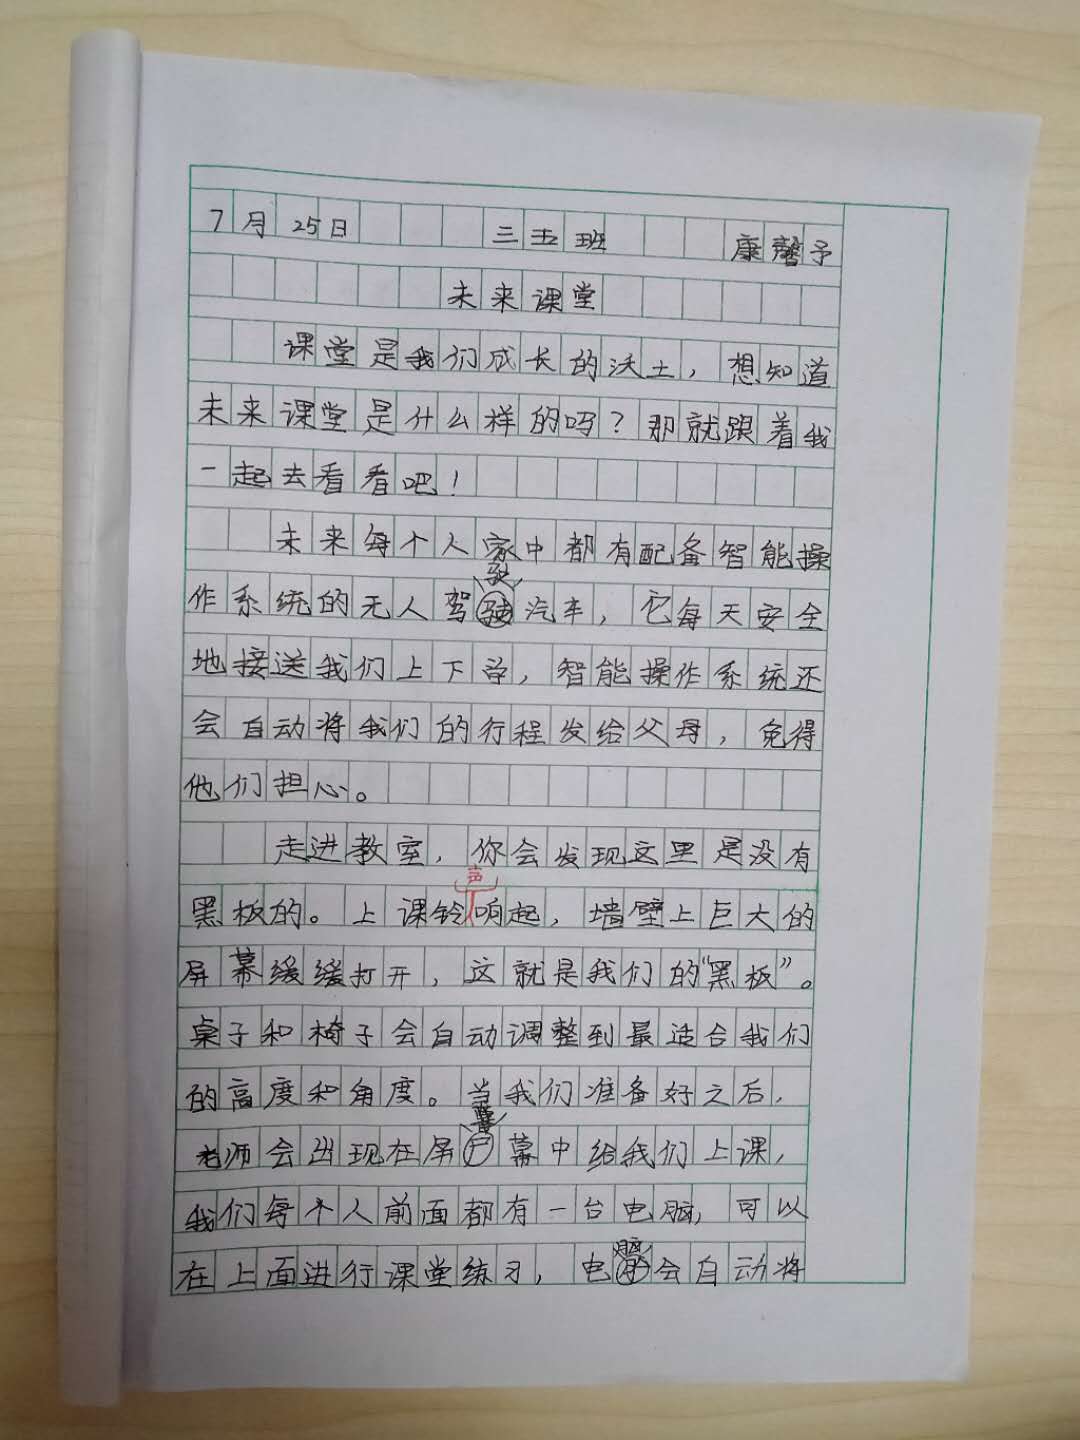 7月25日 三五班 康馨予
未来课堂
课堂是我们成长的沃土，想知道
未来课堂是什么样的吗？那就跟着我
一起去看看吧！
未来每个人家中都有配备智能操
作系统的无人驾驶汽车，它每天安全
地接送我们上下学，智能操作系统还
会自动将我们的行程发给父母，免得
他们担心。
走进教室，你会发现这里是没有
黑板的。上课铃声响起，墙壁上巨大的
屏幕缓缓打开，这就是我们的“黑板”。
桌子和椅子会自动调整到最适合我们
的高度和角度。当我们准备好之后，
老师会出现在屏幕中给我们上课，
我们每个人前面都有一台电脑，可以
在上面进行课堂练习，电脑会自动将